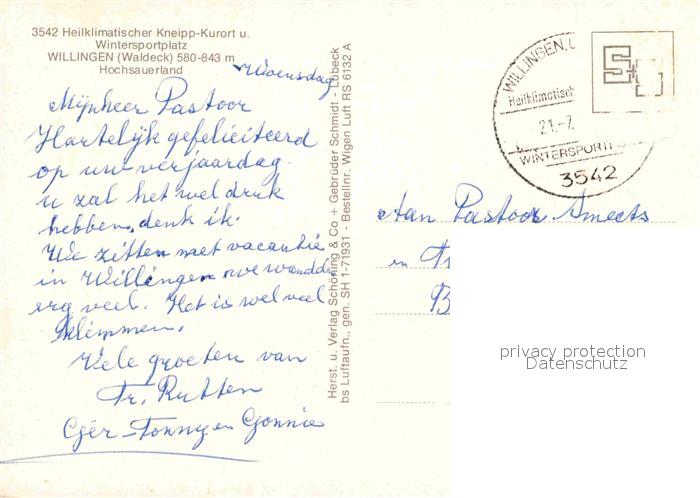 3542 Heilklimatischer Kneipp-Kurort u.
Wintersportplatz
WILLINGEN (Waldeck) 580-843 m
Hochsauerland
Woensdag
Mijnheer Pastoor
Hartelijk gefeliciteerd
op uw verjaardag.
u zal het wel druk
hebben, denk ik.
We zitten met vacantie
in Willingen we wandelen
erg veel. Het is wel veel
klimmen.
Vele groeten van
Fr. Rutten
Gér - Tonny en Gonnie
Herst. u. Verlag Schöning & Co + Gebrüder Schmidt - Lübeck
bs Luftaufn., gen. SH 1-71931 - Bestellnr. Wigen Luft RS 6132 A
WILLINGEN, U
Heilklimatisch
21.-7.
WINTERSPORT
3542
Aan Pastoor Smeets
en Fr
B
privacy protection
Datenschutz